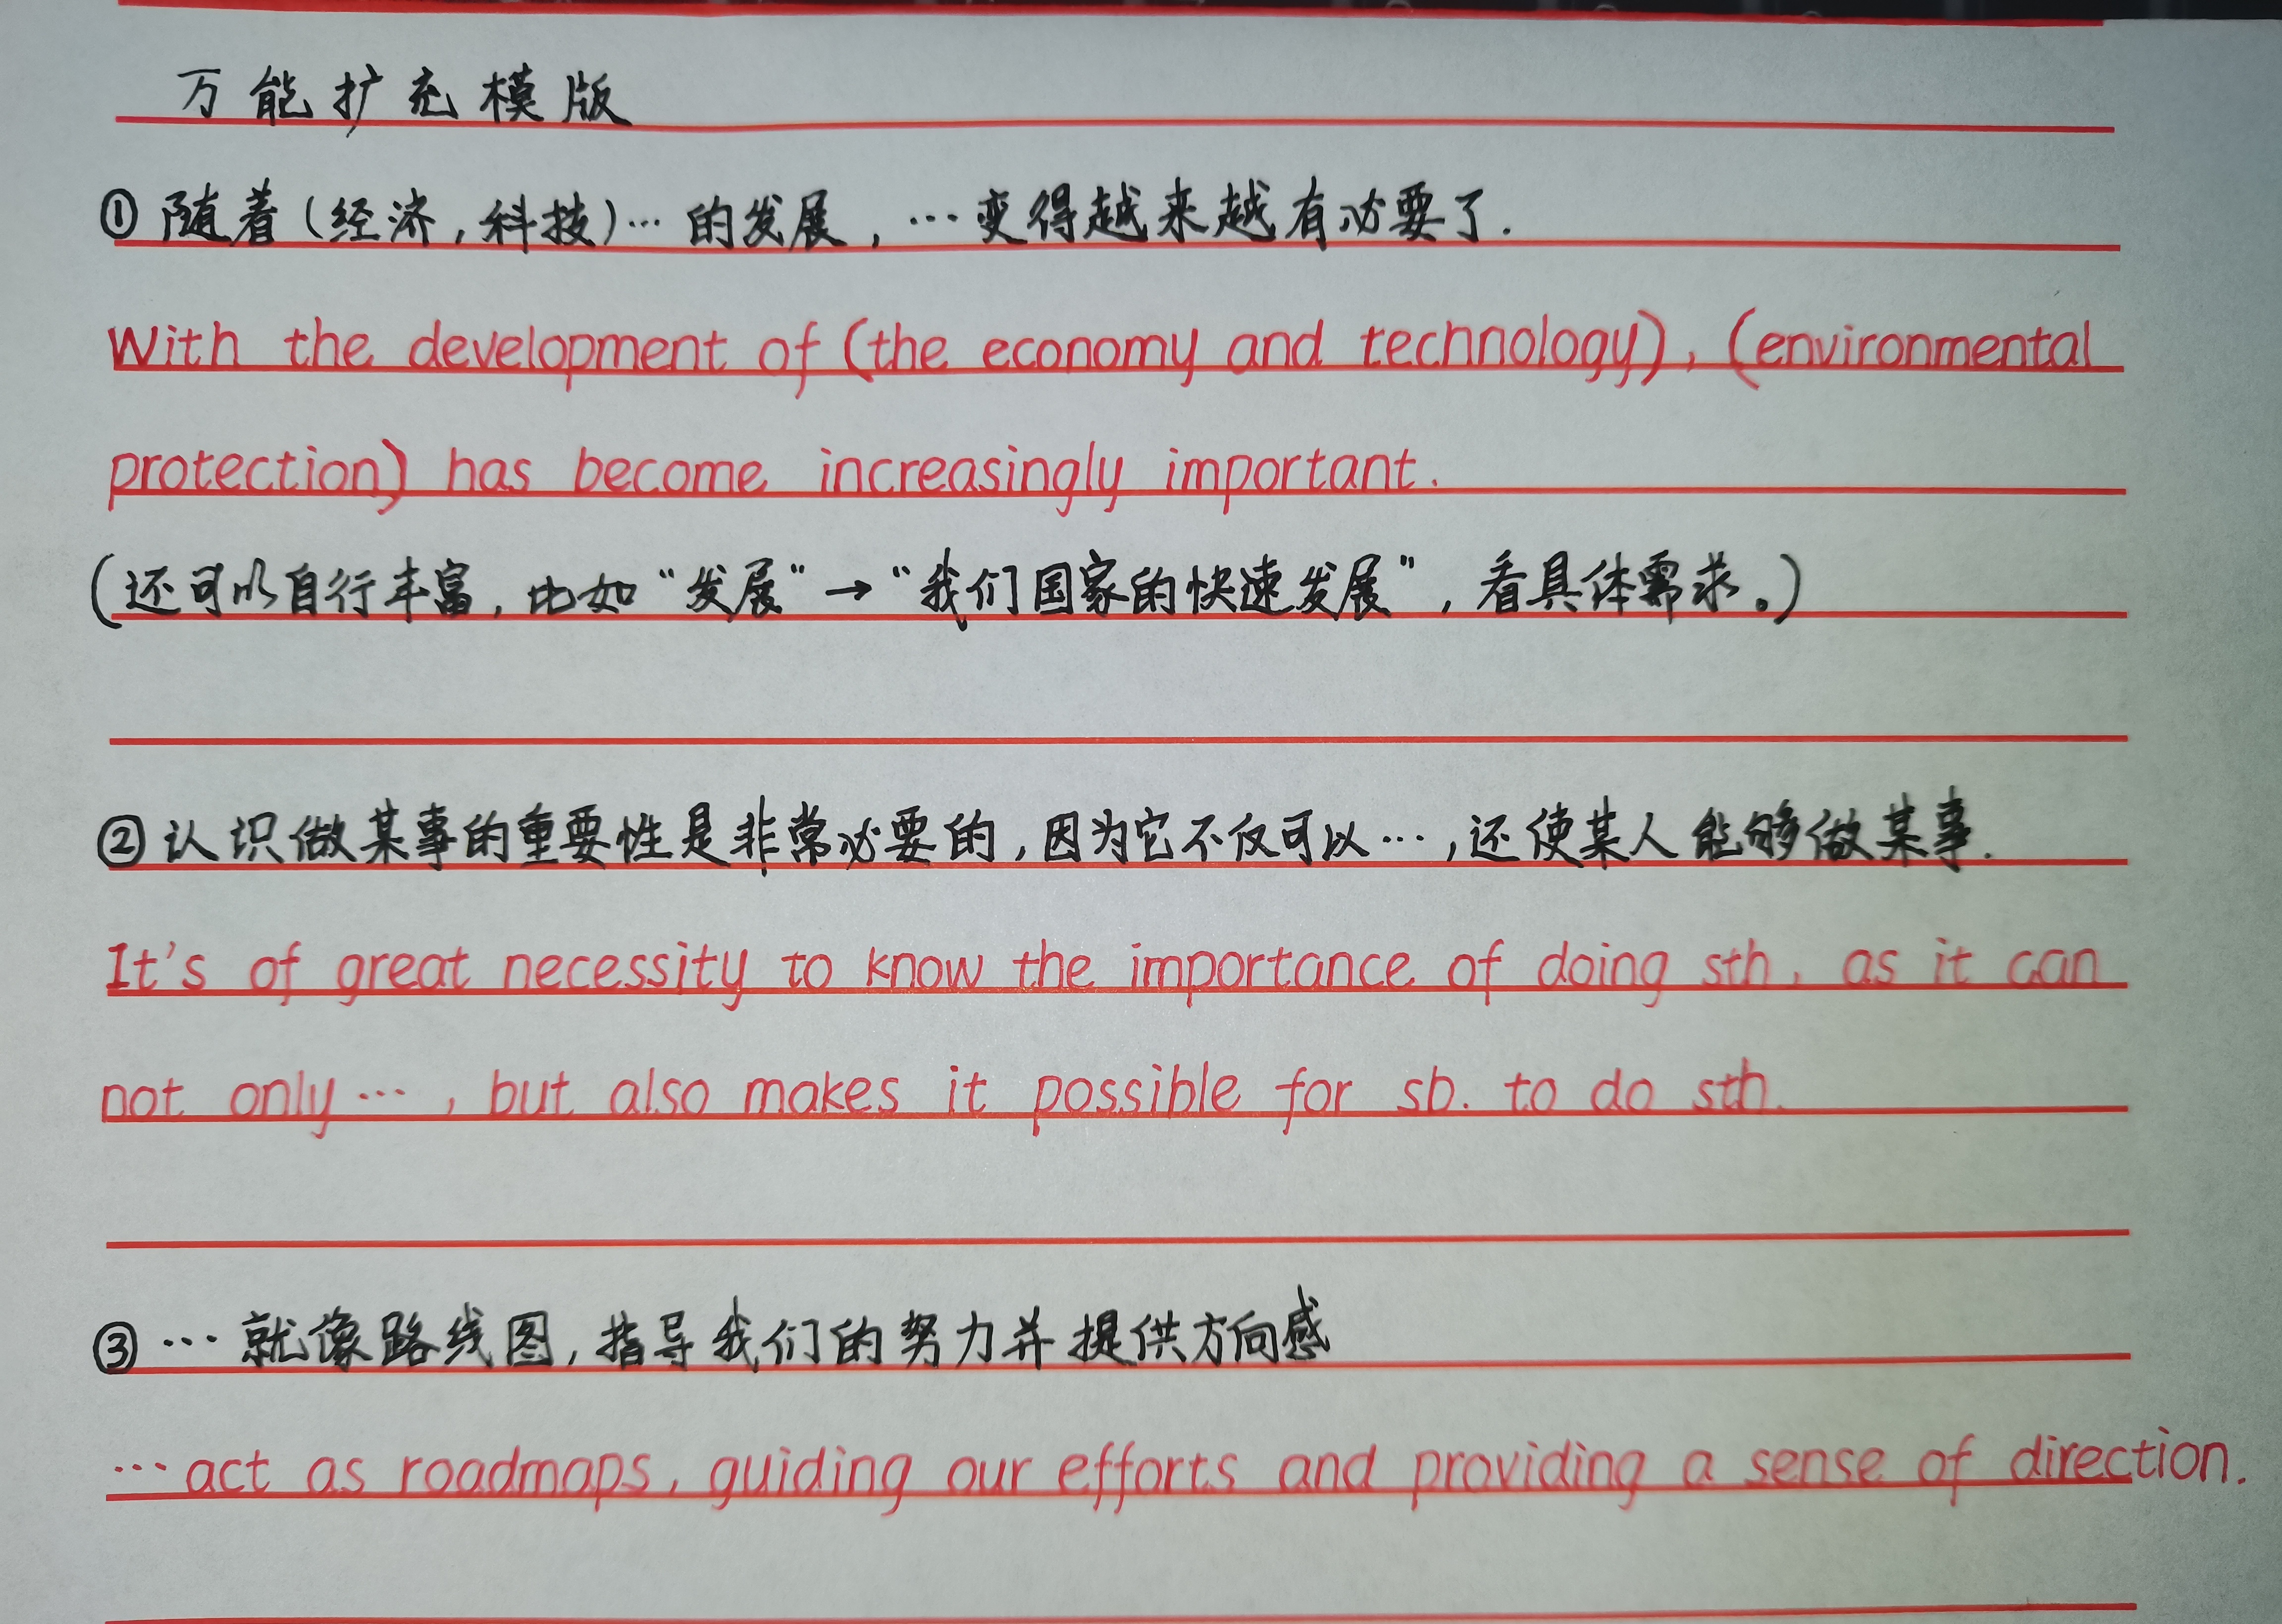 万能扩充模版
①随着(经济,科技)…的发展,…变得越来越有必要了.
With the development of (the economy and technology), (environmental
protection) has become increasingly important.
(还可以自行丰富,比如“发展”→“我们国家的快速发展”,看具体需求。)
②认识做某事的重要性是非常必要的,因为它不仅可以…,还使某人能够做某事.
It's of great necessity to know the importance of doing sth, as it can
not only…, but also makes it possible for sb. to do sth.
③…就像路线图,指导我们的努力并提供方向感
…act as roadmaps, guiding our efforts and providing a sense of direction.